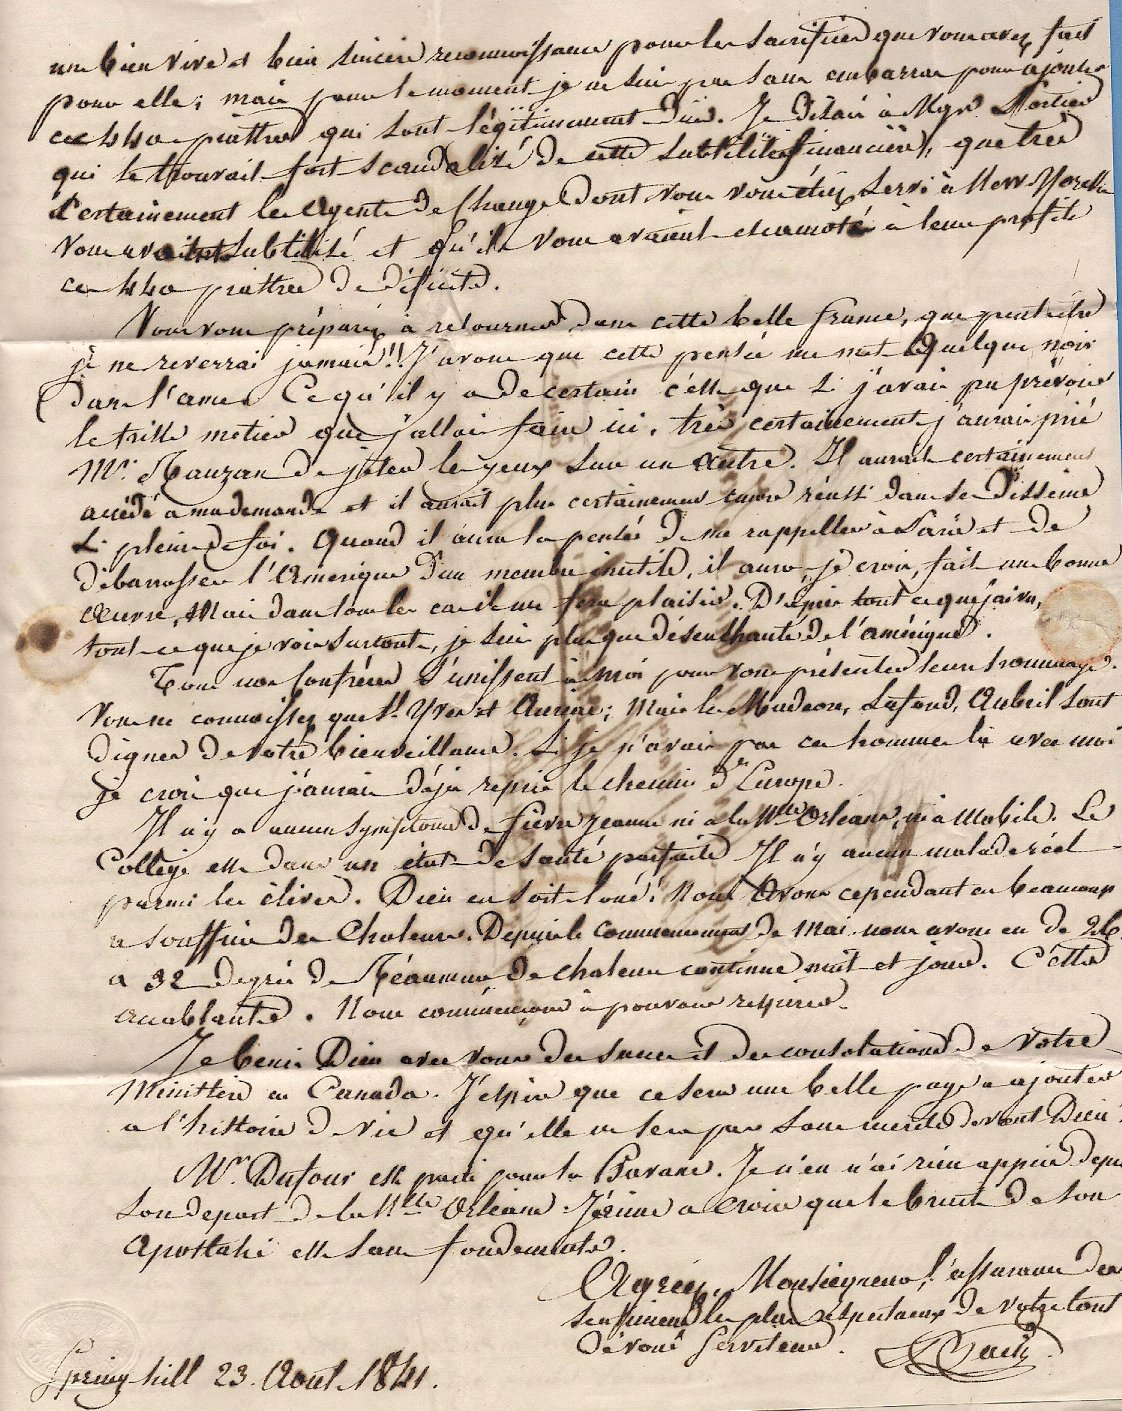 une bien vive et bien sincère reconnoissance pour les sacrifices que vous avez fait
pour elle; mais pour le moment je ne suis pas sans embarras pour ajouter
ces 440 piastres qui sont légitimement dües. Je disais à Mgr Portier
qui le trouvait fort scandalisé de cette subtilité financière, que très
certainement les agents de Change dont vous vous étiez servi à New Yorck
vous avaient subtilisé et qu'ils vous avaient escamoté à leur profit
ces 440 piastres de déficite.
Vous vous préparez à retourner dans cette belle france, que peut être
je ne reverrai jamais!! J'avoue que cette pensée me met quelque noir
dans l'ame. Ce qu'il y a de certain c'est que si j'avais pu prévoir
le triste métier que j'allais faire ici, très certainement j'aurais prié
Mr. Rauzan de jeter les yeux sur un autre. Il aurait certainement
accédé à ma demande et il aurait plus certainement encore réussi dans ses desseins
si pleins de foi. Quand il aura la pensée de me rappeller à Paris et de
débarrasser l'Amérique d'un membre inutile, il aura, je crois, fait une bonne
œuvre, Mais dans tous les cas il me fera plaisir. D'après tout ce que j'ai vu,
tout ce que je vois surtout, je suis plus que désenchanté de l'amérique.
Tous nos Confrères s'unissent à moi pour vous présenter leurs hommages.
Vous ne connoissez que St. Yves et ; Mais les , Lafond, Aubril sont
dignes de votre bienveillance. Si je n'avais pas ces hommes là avec moi
je crois que j'aurais déjà repris le chemin d'Europe.
Il n'y a aucun symptome de fièvre jeaune ni à la Nlle Orléans, ni à Mobile. Le
Collège est dans un état de santé parfaite Il n'y aucun malade réel
parmi les élèves. Dieu en soit loué! Nous avons cependant eu beaucoup
a souffrir des Chaleurs. Depuis le commencement de Mai nous avons eu de 26
a 32 degrés de Réaumur de chaleur continue nuit et jour. C'était
accablante. Nous commençons à pouvoir respirer.
Je benis Dieu avec vous des succes et des consolations de votre
Ministère en Canada. J'espère que ce sera une belle page a ajouter
a l'histoire de vie et qu'elle ne sera pas sans mérite devant Dieu.
Mr. Dufour est parti pour la Havane. Je n'en n'ai rien appris depuis
son depart de la Nlle Orléans. J'érime a croire que le bruit de son
apostasie est sans fondements.
Agréez, Monseigneur, l'assurance des
sentiments les plus respectueux de votre tout
dévoué Serviteur. Bach
Spring hill 23 Aout 1841.